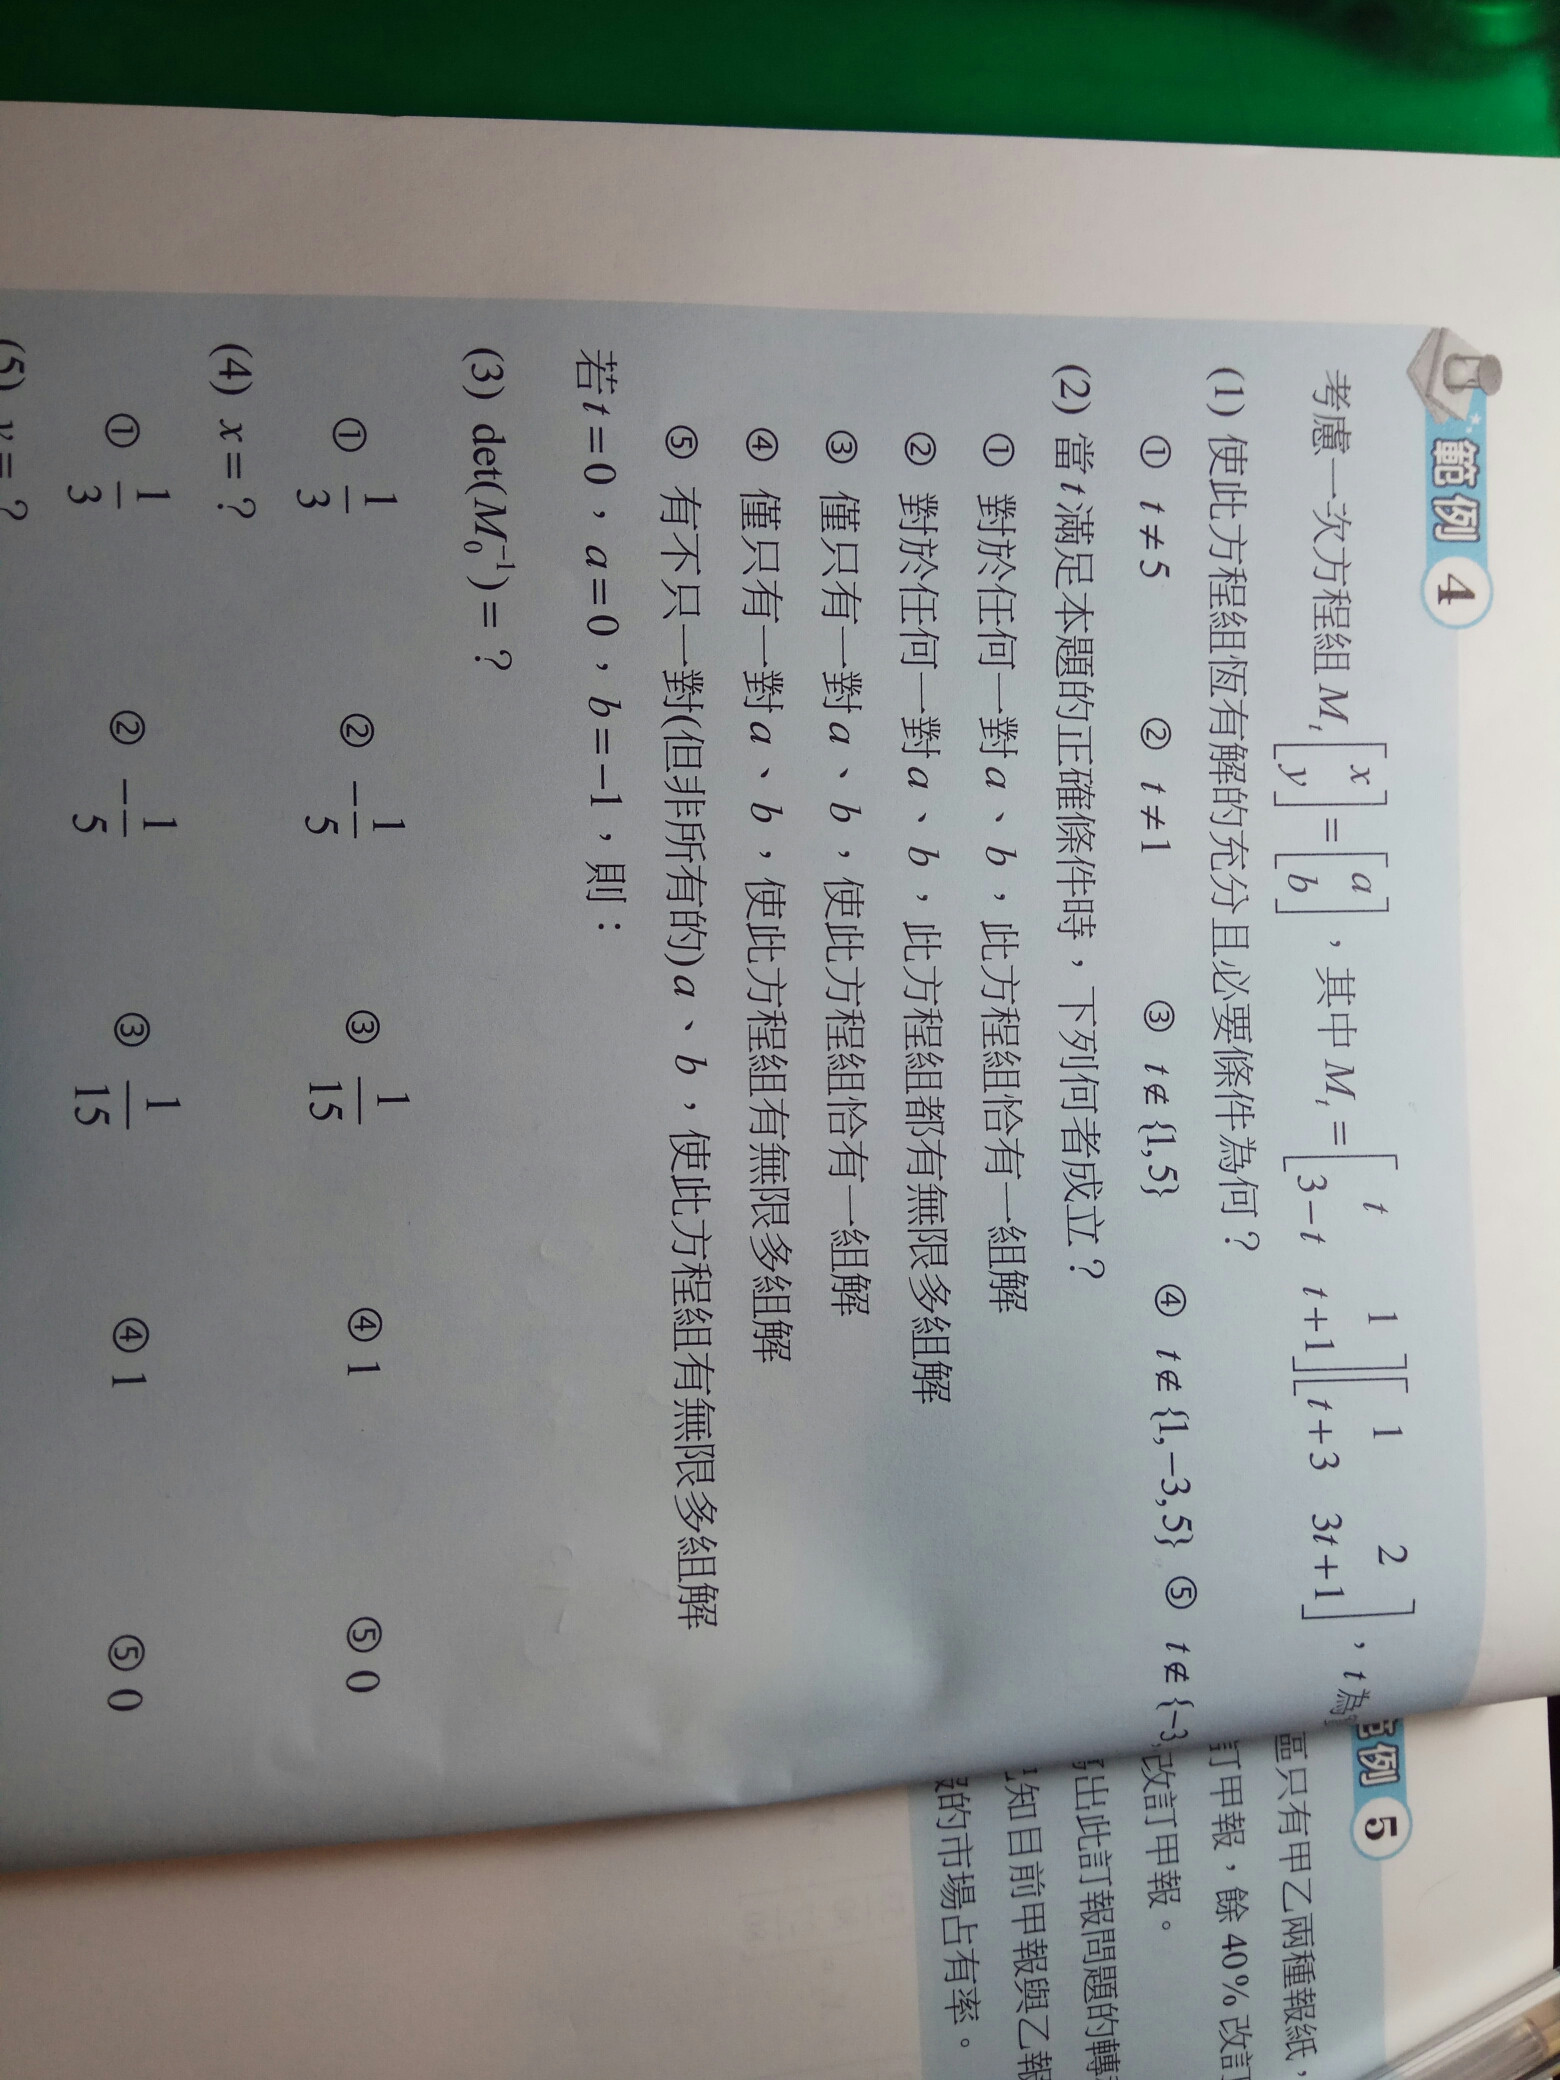 範例 4
考慮一次方程組 M_t [x y] = [a b] ，其中 M_t = [t 1 3−t t+1][1 2 t+3 3t+1]，t 為
(1) 使此方程組恆有解的充分且必要條件為何？
① t≠5 ② t≠1 ③ t∉{1,5} ④ t∉{1,−3,5} ⑤ t∉{−3,
(2) 當 t 滿足本題的正確條件時，下列何者成立？
① 對於任何一對 a、b，此方程組恰有一組解
② 對於任何一對 a、b，此方程組都有無限多組解
③ 僅只有一對 a、b，使此方程組恰有一組解
④ 僅只有一對 a、b，使此方程組有無限多組解
⑤ 有不只一對(但非所有的) a、b，使此方程組有無限多組解
若 t=0，a=0，b=−1，則：
(3) det(M₀⁻¹)=？
① 1/3 ② −1/5 ③ 1/15 ④ 1 ⑤ 0
(4) x=？
① 1/3 ② −1/5 ③ 1/15 ④ 1 ⑤ 0
(5) y=？
範例 5
區只有甲乙兩種報紙，
訂甲報，餘 40% 改訂
改訂甲報。
出此訂報問題的轉
知目前甲報與乙報
報的市場占有率。